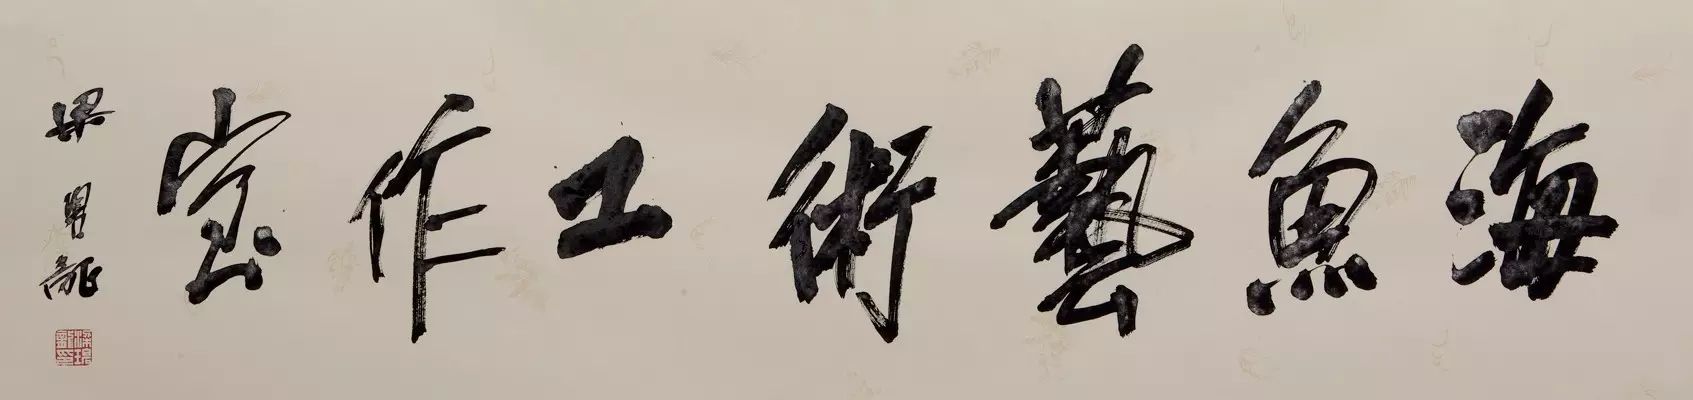 海魚藝術工作室
梁 龍